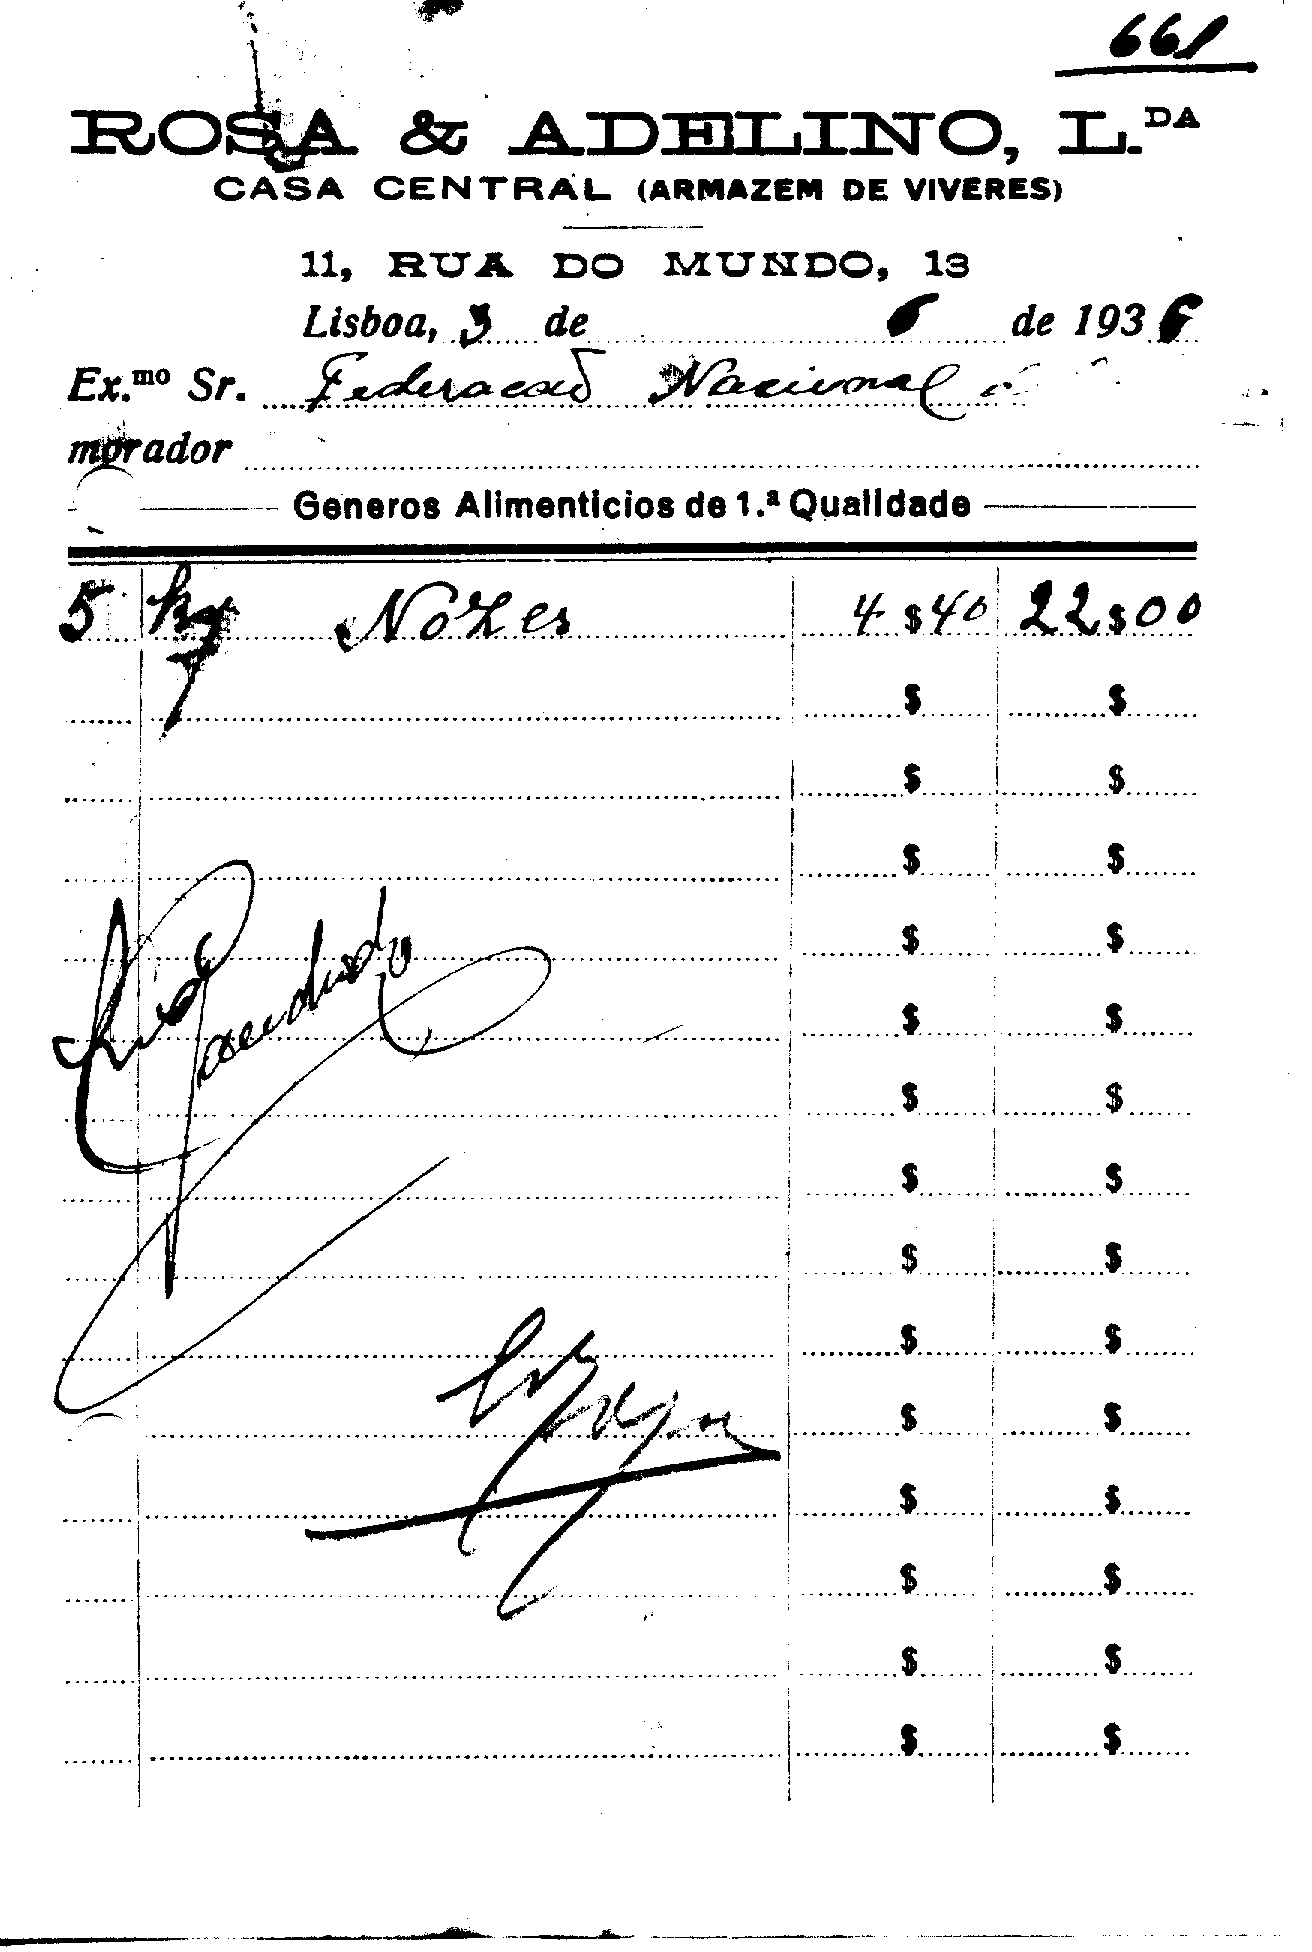 661
ROSA & ADELINO, L.DA
CASA CENTRAL (ARMAZEM DE VIVERES)
11, RUA DO MUNDO, 13
Lisboa, 3 de 6 de 1936
Ex.mo Sr. Federacao Nacional
morador
Generos Alimenticios de 1.ª Qualidade
5 kg Nozes 4 $ 40 22 $ 00
$ $
$ $
$ $
$ $
$ $
$ $
$ $
$ $
$ $
$ $
$ $
$ $
$ $
$ $